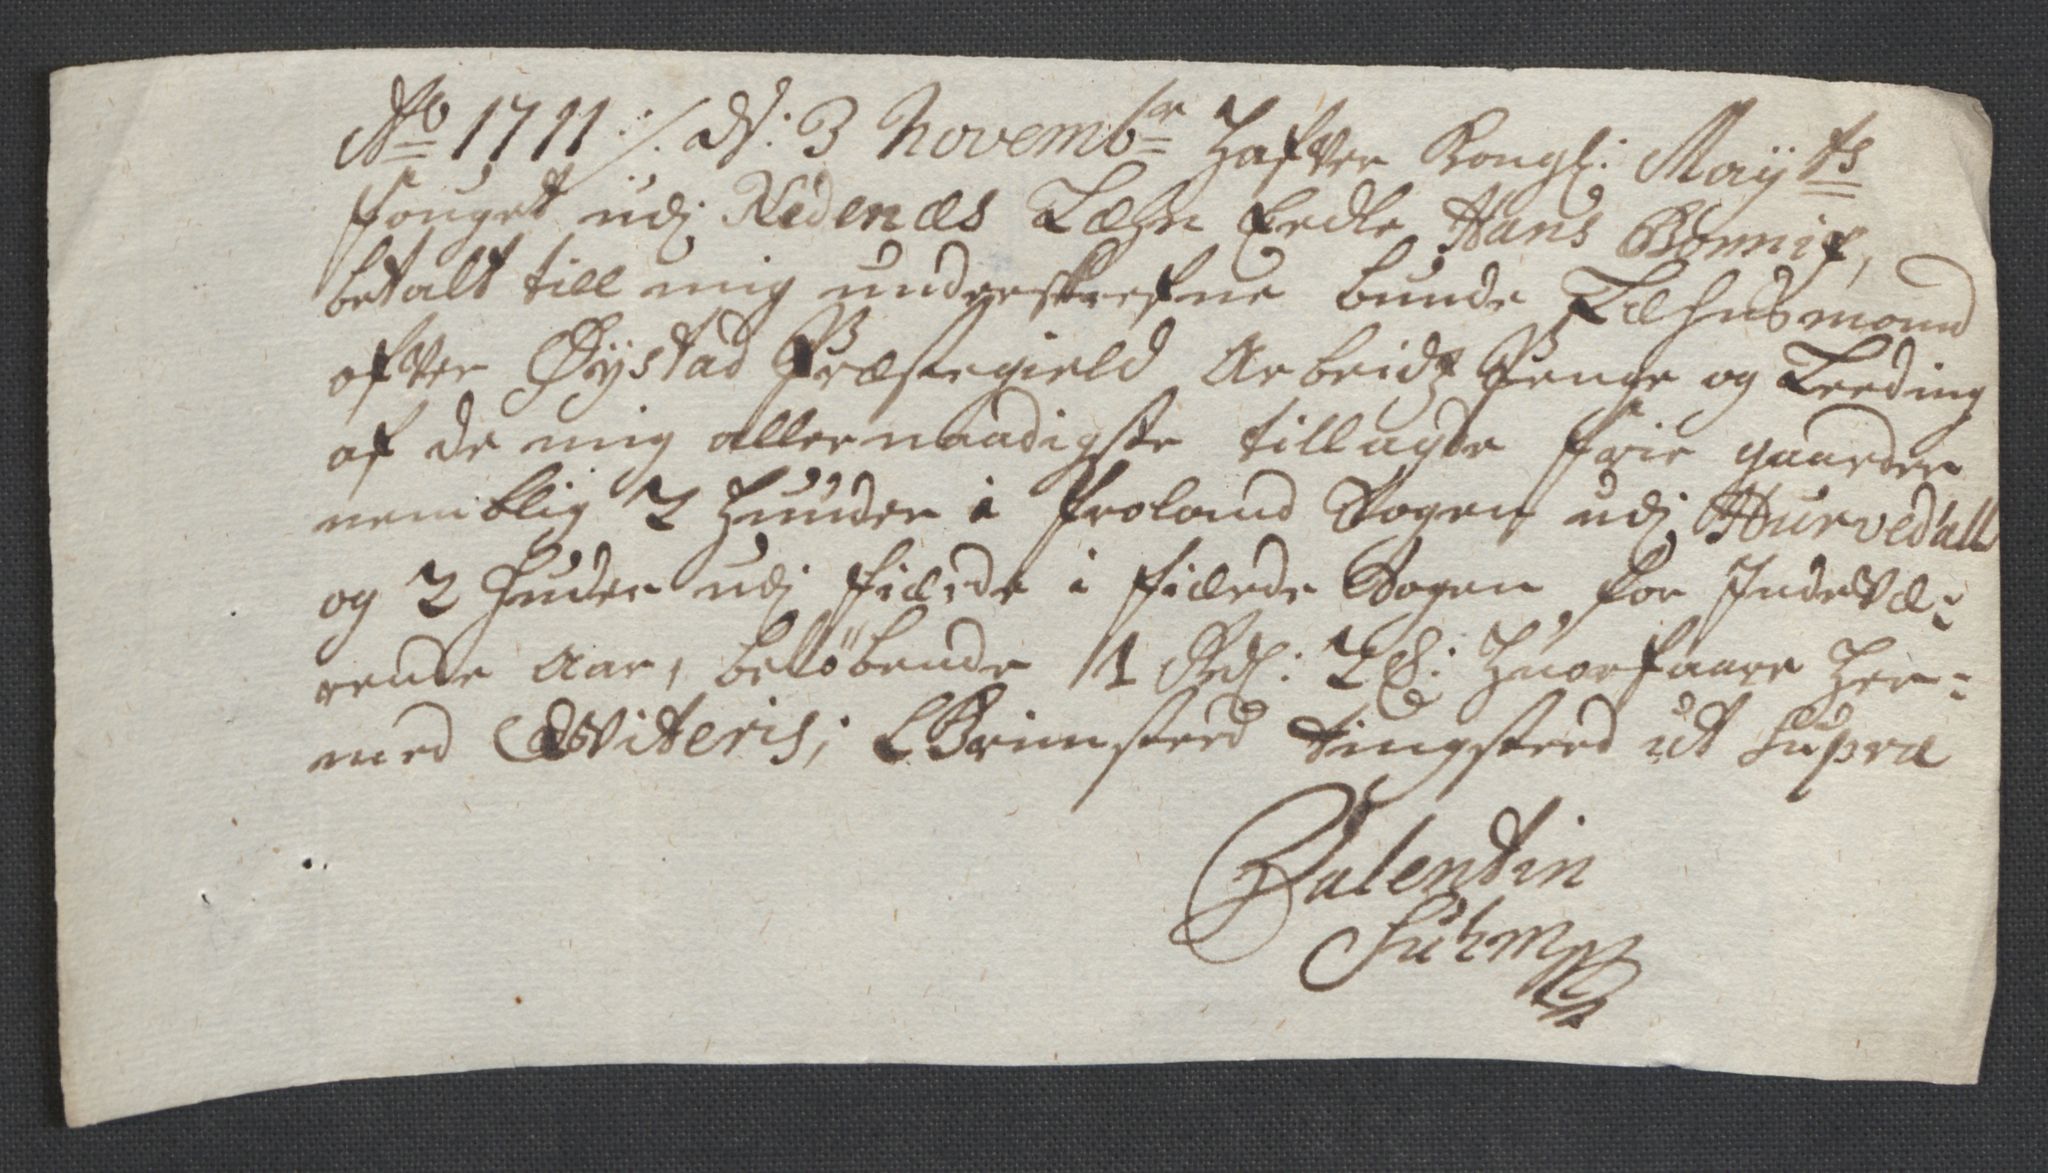 Ao 1711 ./. d: 3 Novembr Hafver Kongl: Maÿts
fouget udj Nedenæs Læhn Eedle Hans Bonnif,
betalt till mig underskrefne bunde Læhnsmand
ofver Øÿstad Præstegield Arbeidtz Penge og Leeding
af de mig allernaadigste tillagde frie gaarder
nemblig 2 huuder i Froland Sogen udj Hurvedall
og 2 huder udj fiærde i fiærde Sogen, for Indevæ-
rende Aar, beløbende 1 Rdl: 2 ß: Huorfaare Her-
med Qviteris, Brinsteed tingsteed ut supra
Valentin
Suhm